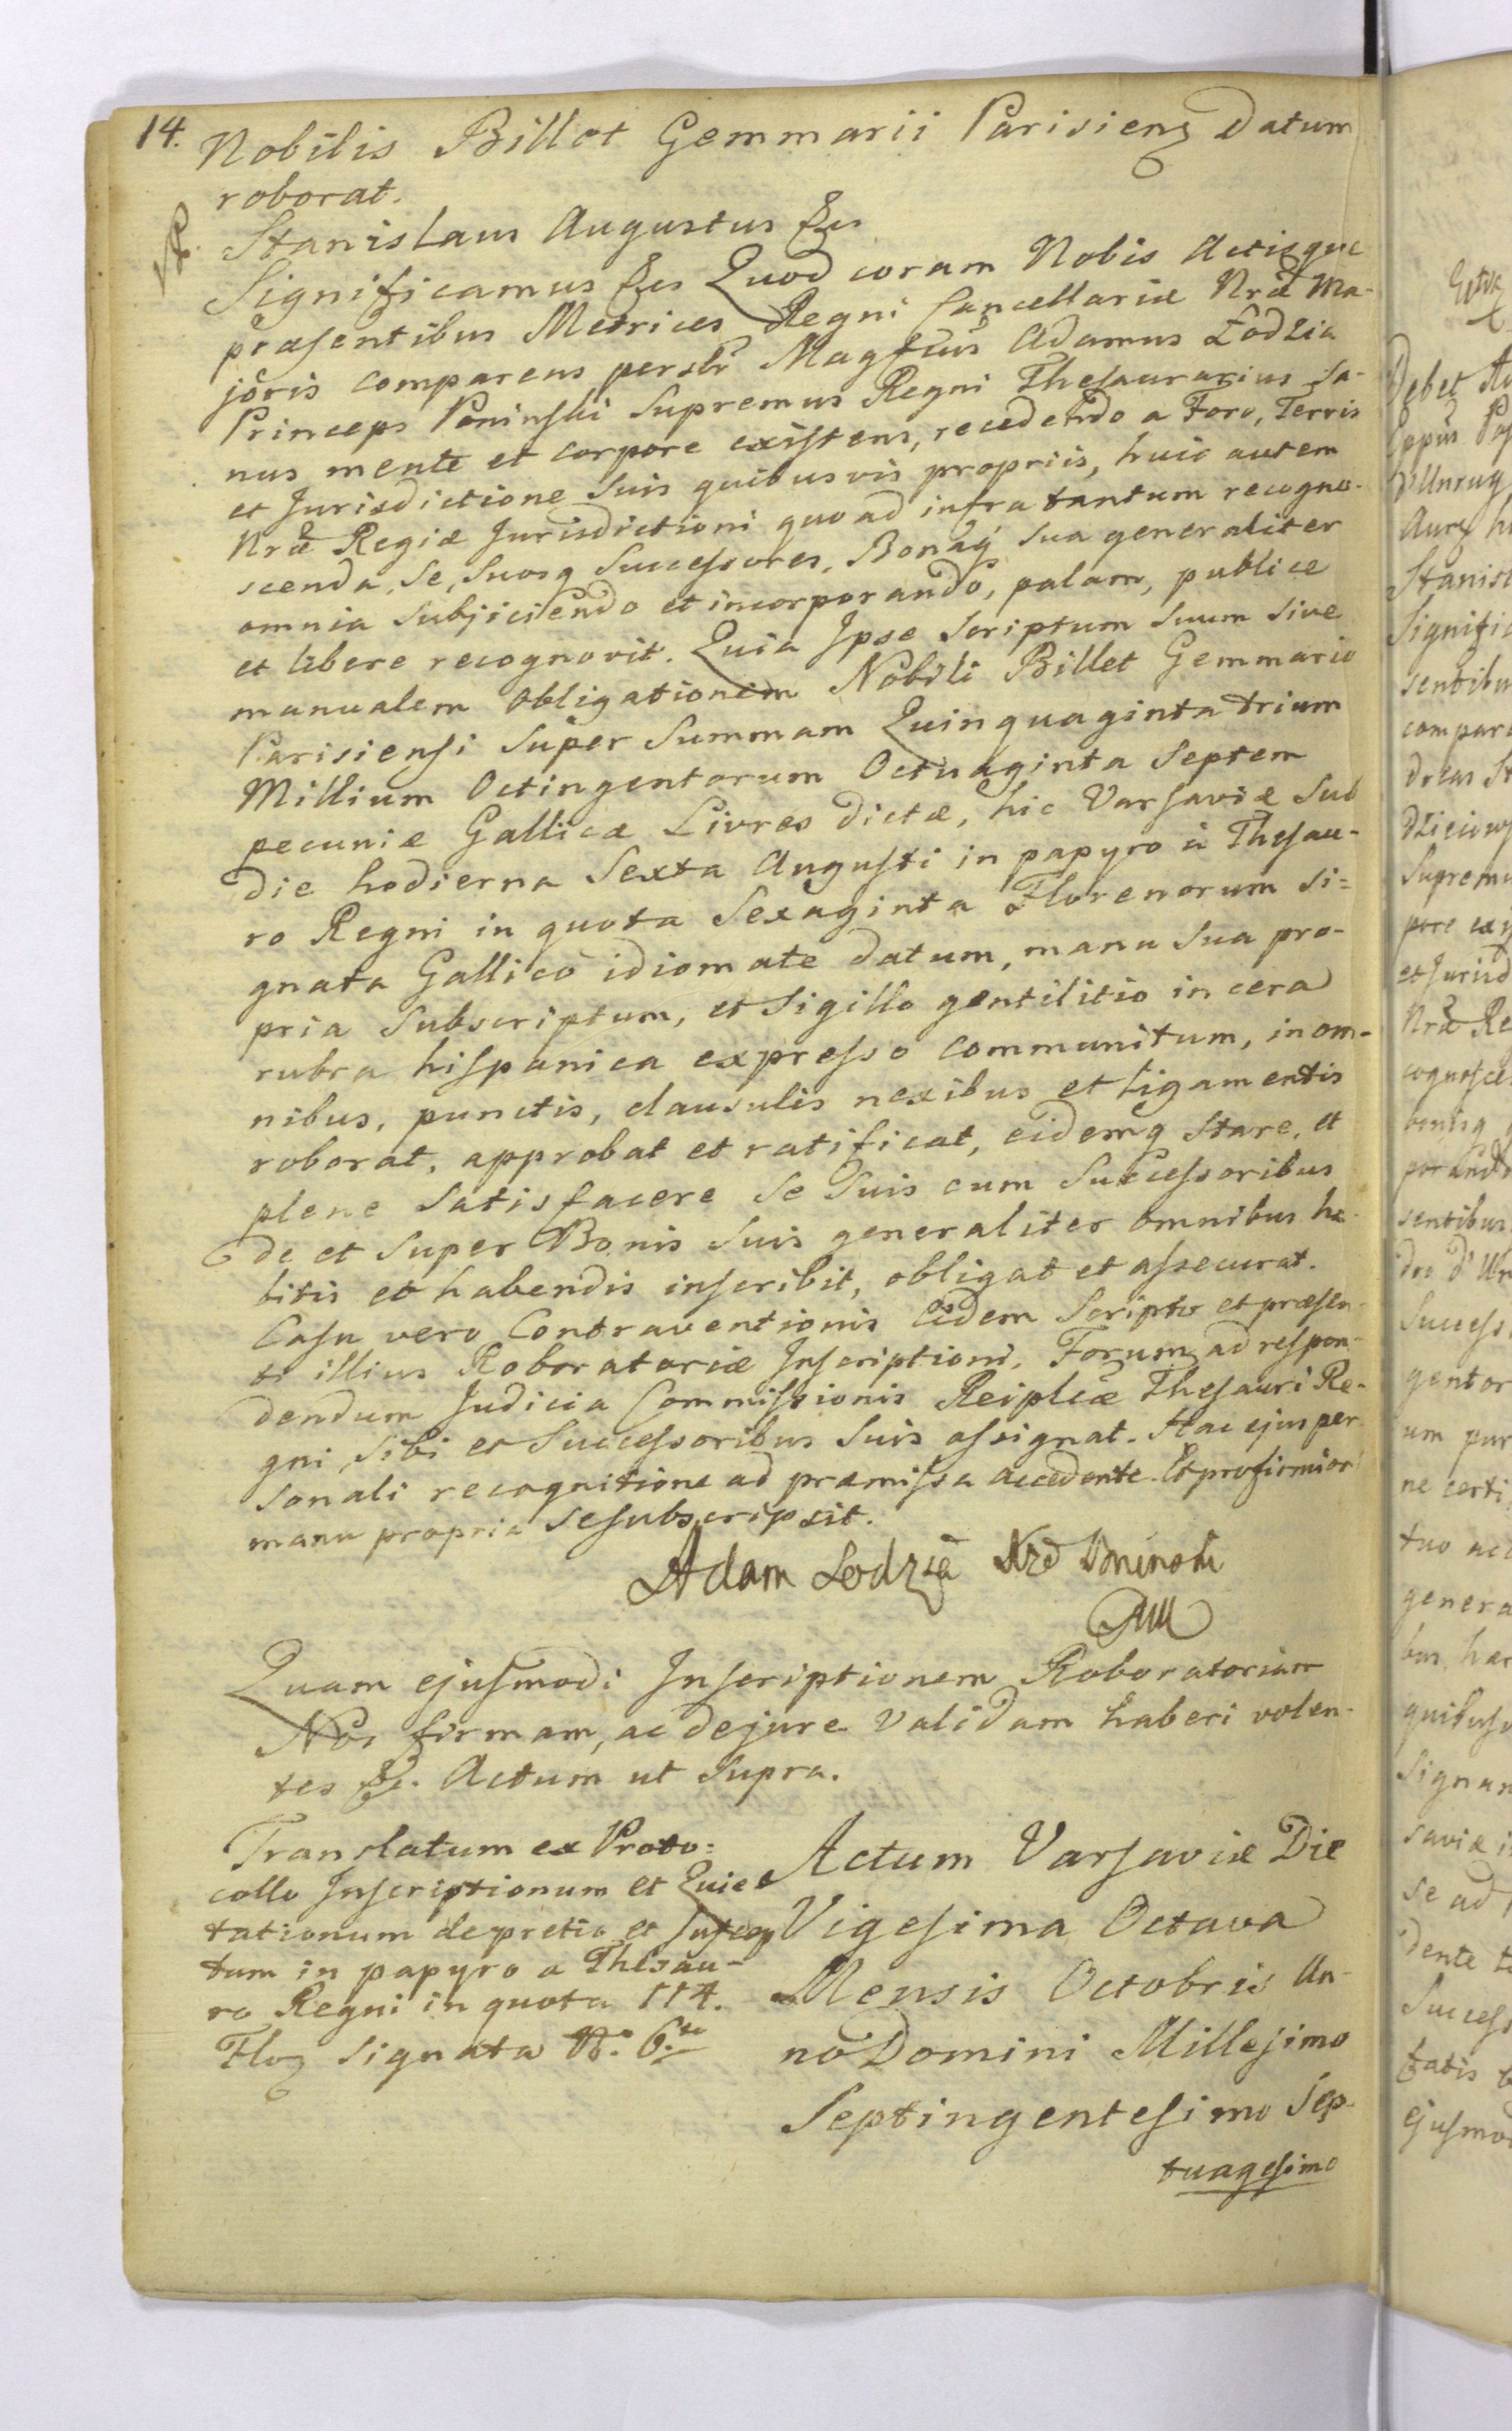 14.
Nobilis Billet Gemmarii Parisiens Datum
roborat.
Stanislaus Augustus &es
Significamus &es Quod coram Nobis Actisque
præsentibus Metrices Regni Cancellariæ Nræ Ma-
joris comparens perslr Magfcus Adamus Łodzia
Princeps Poninski Supremus Regni Thesaurarius sa-
nus mente et corpore existens, recedendo a Foro, Terris
et Jurisdictione suis quibusvis propriis, huic autem
Nræ Regiæ Jurisdictioni quoad infra tantum recogno-
scenda, se, suosq Successores, Bonaq sua generaliter
omnia subjiciendo et incorporando, palam, publice
et libere recognovit. Quia Ipse Scriptum suum sive
manualem obligationem Nobili Billet Gemmario
Parisiensi super Summam Quinquaginta trium
Millium Octingentorum Octuaginta Septem
pecuniæ Gallicæ Livres dictæ, hic Varsaviæ Sub
die hodierna Sexta Augusti in papyro à Thesau-
ro Regni in quota Sexaginta Florenorum si=
gnata Gallico idiomate datum, manu sua pro-
pria subscriptum, et sigillo gentilitio in cera
rubra hispanica expresso communitum, in om-
nibus, punctis, clausulis nexibus et ligamentis
roborat, approbat et ratificat, eidemq stare, et
plene satisfacere se suis cum Successoribus
de et super Bonis suis generaliter omnibus ha-
bitis et habendis inscribit, obligat et assecurat.
Casu vero Contraventionis eidem Scripto et præsen-
ti illius Roboratoriæ Inscriptioni, Forum ad respon-
dendum Judicia Commissionis Reiplcæ Thesauri Re-
gni, sibi et Successoribus suis assignat. Hac ejus per-
sonali recognitione ad præmissa accedente. Et pro firmiori
manu propria se subscripsit.
Adam Lodzia Poninski
Quam ejusmodi Inscriptionem Roboratoriam
Nos firmam, ac de jure validam haberi volen-
tes &c. Actum ut supra.
Translatum ex Proto=
collo Inscriptionum et Quie-
tationum de pretio et suscep
tum in papyro a Thesau-
ro Regni in quota 114.
Flor signata No. 6to
Actum Varsaviæ Die
Vigesima Octava
Mensis Octobris An-
no Domini Millesimo
Septingentesimo Sep-
tuagesimo